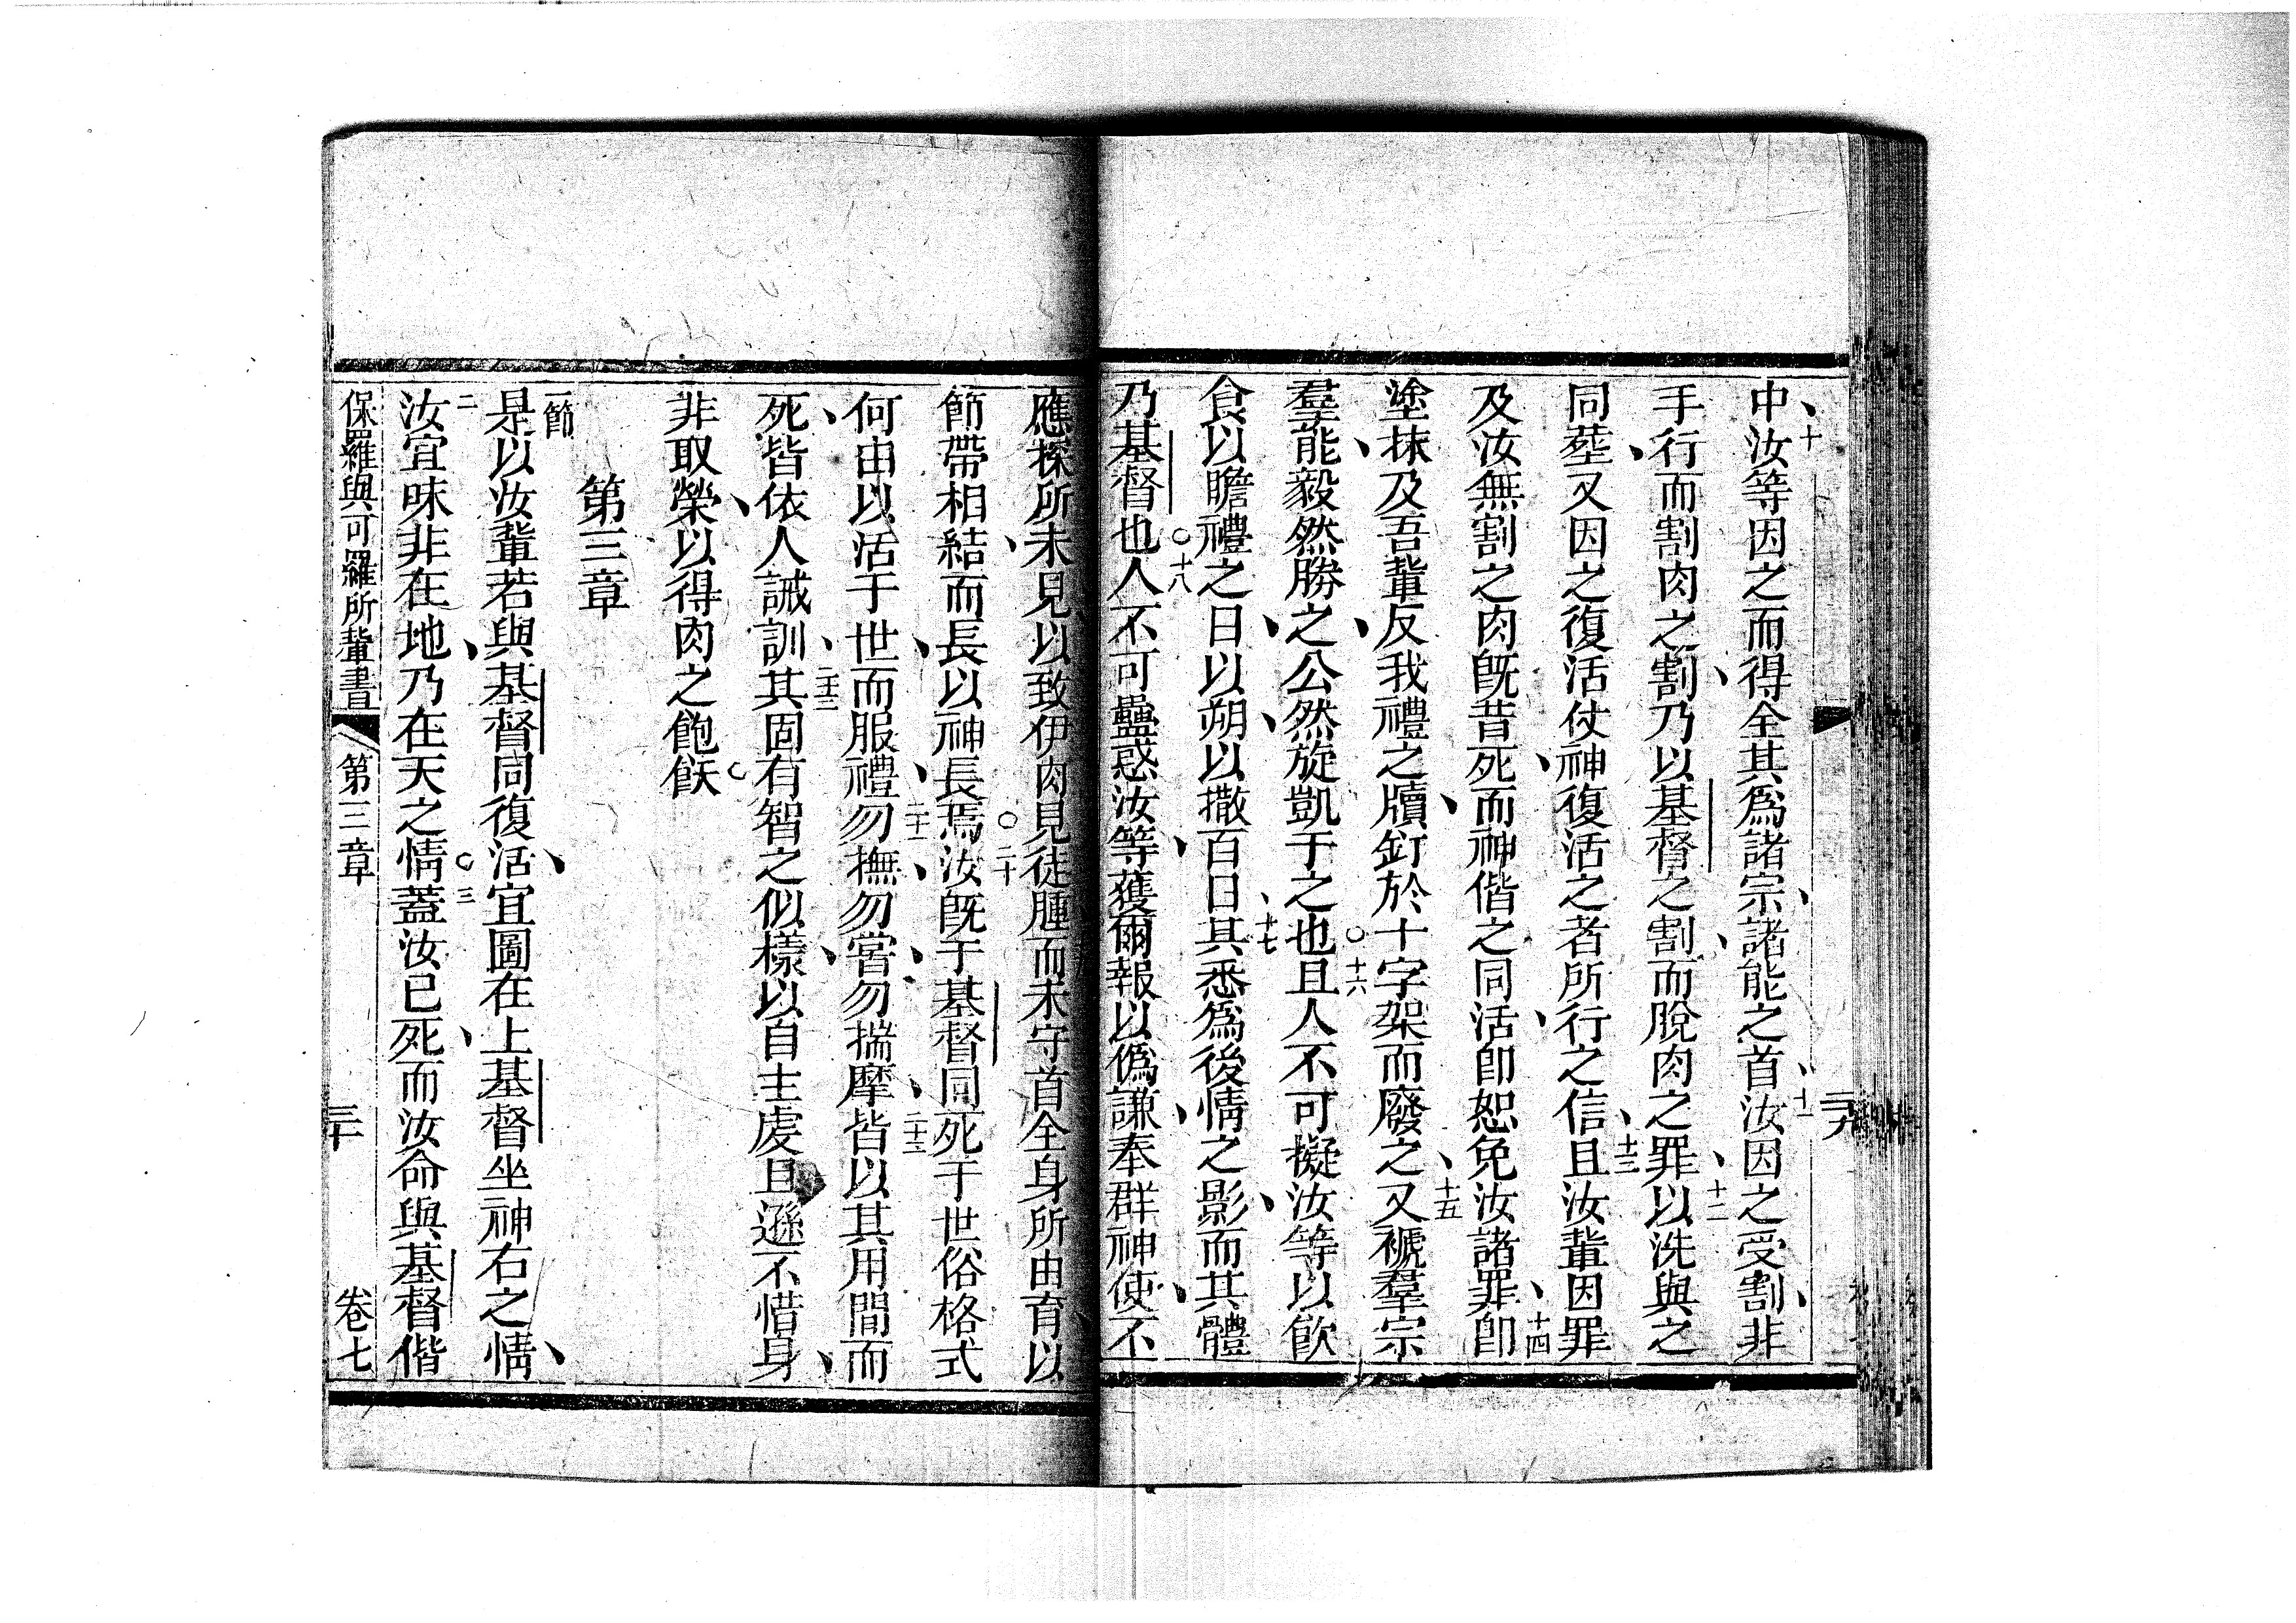 中汝等因之而得全其爲諸宗諸能之首汝因之受割非
手行而割肉之割乃以基督之割而脫肉之罪以洗與之
同塟又因之復活仗神復活之者所行之信且汝輩因罪
及汝無割之肉旣昔死而神偕之同活卽恕免汝諸罪卽
塗抹及吾輩反我禮之牘釘於十字架而廢之又褫羣宗
羣能毅然勝之公然旋凱于之也且人不可擬汝等以飮
食以瞻禮之日以朔以撒百日其悉爲後情之影而其體
乃基督也人不可蠱惑汝等獲爾報以僞謙奉群神使不
應探所未見以致伊肉見徒腫而未守首全身所由育以
節帶相結而長以神長焉汝旣于基督同死于世俗格式
何由以活于世而服禮勿撫勿嘗勿揣摩皆以其用間而
死皆依人誡訓其固有智之似樣以自主虔且遜不惜身
非取榮以得肉之飽飫
第三章
一節
是以汝輩若與基督同復活宜圖在上基督坐神右之情
汝宜味非在地乃在天之情蓋汝已死而汝命與基督偕
保羅與可羅所輩書 第三章 三十 卷七